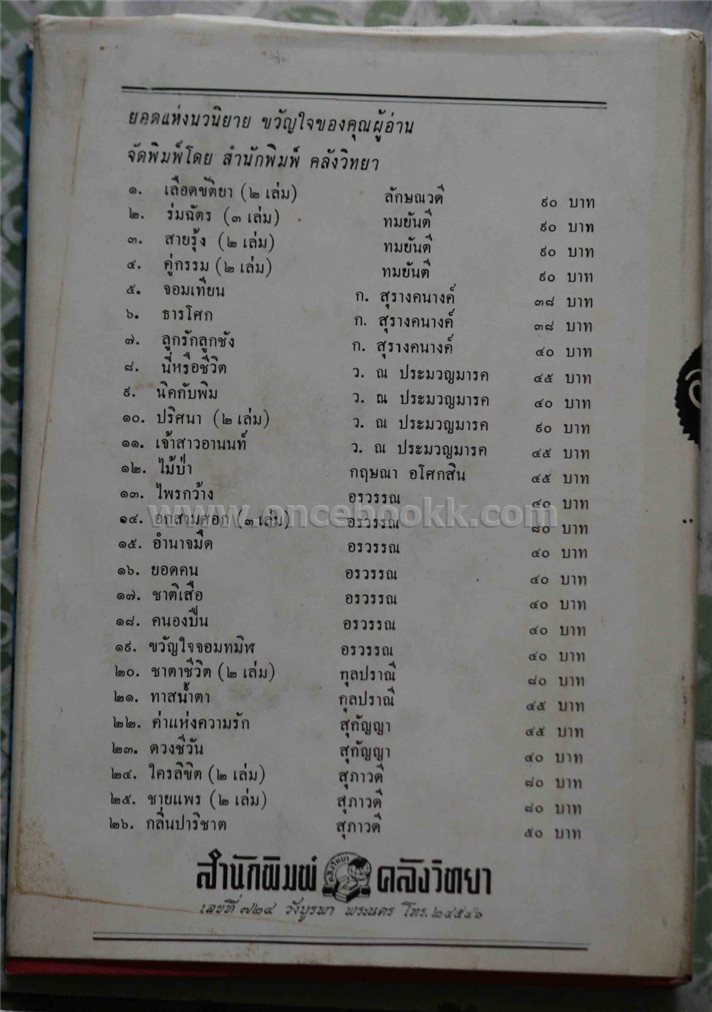 ยอดแห่งนวนิยาย ขวัญใจของคุณผู้อ่าน
จัดพิมพ์โดย สำนักพิมพ์ คลังวิทยา
๑. เลือดขัติยา (๒ เล่ม) ลักษณวดี ๙๐ บาท
๒. ร่มฉัตร (๓ เล่ม) ทมยันตี ๙๐ บาท
๓. สายรุ้ง (๒ เล่ม) ทมยันตี ๙๐ บาท
๔. คู่กรรม (๒ เล่ม) ทมยันตี ๙๐ บาท
๕. จอมเทียน ก. สุรางคนางค์ ๓๘ บาท
๖. ธารโศก ก. สุรางคนางค์ ๓๘ บาท
๗. ลูกรักลูกชัง ก. สุรางคนางค์ ๔๐ บาท
๘. นี่หรือชีวิต ว. ณ ประมวญมารค ๔๕ บาท
๙. นิคกับพิม ว. ณ ประมวญมารค ๔๐ บาท
๑๐. ปริศนา (๒ เล่ม) ว. ณ ประมวญมารค ๙๐ บาท
๑๑. เจ้าสาวอานนท์ ว. ณ ประมวญมารค ๔๕ บาท
๑๒. ไม้ป่า กฤษณา อโศกสิน ๔๕ บาท
๑๓. ไพรกว้าง อรวรรณ ๔๐ บาท
www.oncebookk.com
๑๔. อกสามศอก (๓ เล่ม) อรวรรณ ๘๐ บาท
๑๕. อำนาจมืด อรวรรณ ๔๐ บาท
๑๖. ยอดคน อรวรรณ ๔๐ บาท
๑๗. ชาติเสือ อรวรรณ ๔๐ บาท
๑๘. คนองปืน อรวรรณ ๔๐ บาท
๑๙. ขวัญใจจอมทมิฬ อรวรรณ ๔๐ บาท
๒๐. ชาตาชีวิต (๒ เล่ม) กุลปราณี ๘๐ บาท
๒๑. ทาสน้ำตา กุลปราณี ๔๕ บาท
๒๒. ค่าแห่งความรัก สุกัญญา ๔๕ บาท
๒๓. ดวงชีวัน สุกัญญา ๔๐ บาท
๒๔. ใครลิขิต (๒ เล่ม) สุภาวดี ๘๐ บาท
๒๕. ชายแพร (๒ เล่ม) สุภาวดี ๘๐ บาท
๒๖. กลิ่นปาริชาต สุภาวดี ๕๐ บาท
สำนักพิมพ์ คลังวิทยา คลังวิทยา
เลขที่ ๗๒๔ วังบูรพา พระนคร โทร. ๒๔๕๔๖